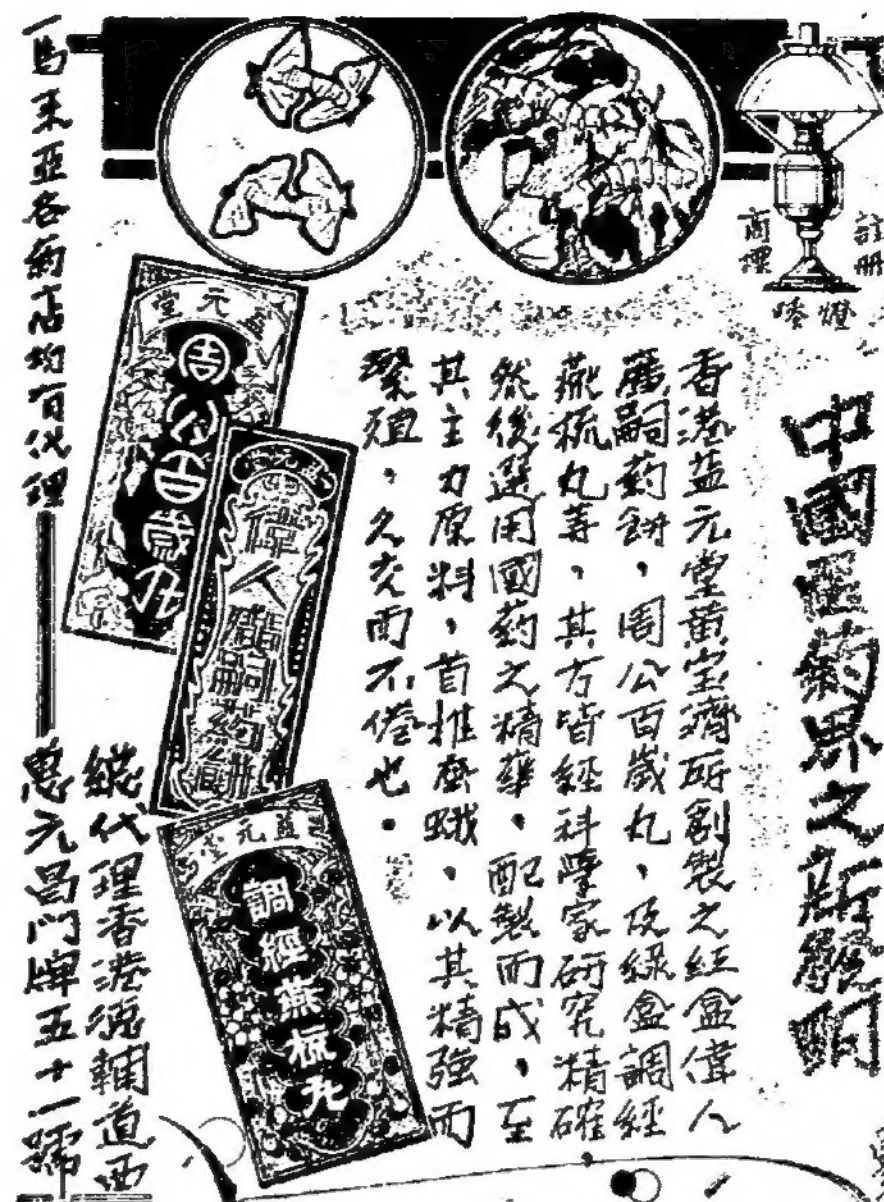 註冊
商標
燈嘜
中國醫藥界之新發明
香港益元堂黃宝濟所創製之紅盒偉人
廣嗣药餅，周公百歲丸，及綠盒調經
燕梳丸等，其方皆經科學家研究精確，
然後選用國药之精華，配製而成，至
其主力原料，首推蚕蛾，以其精強而
繁殖，久交而不倦也。
益元堂
周公百歲丸
益元堂
偉人廣嗣葯餅
益元堂
調經燕梳丸
總代理香港德輔道西
惠元昌門牌五十一號
馬来亞各葯店均有代理